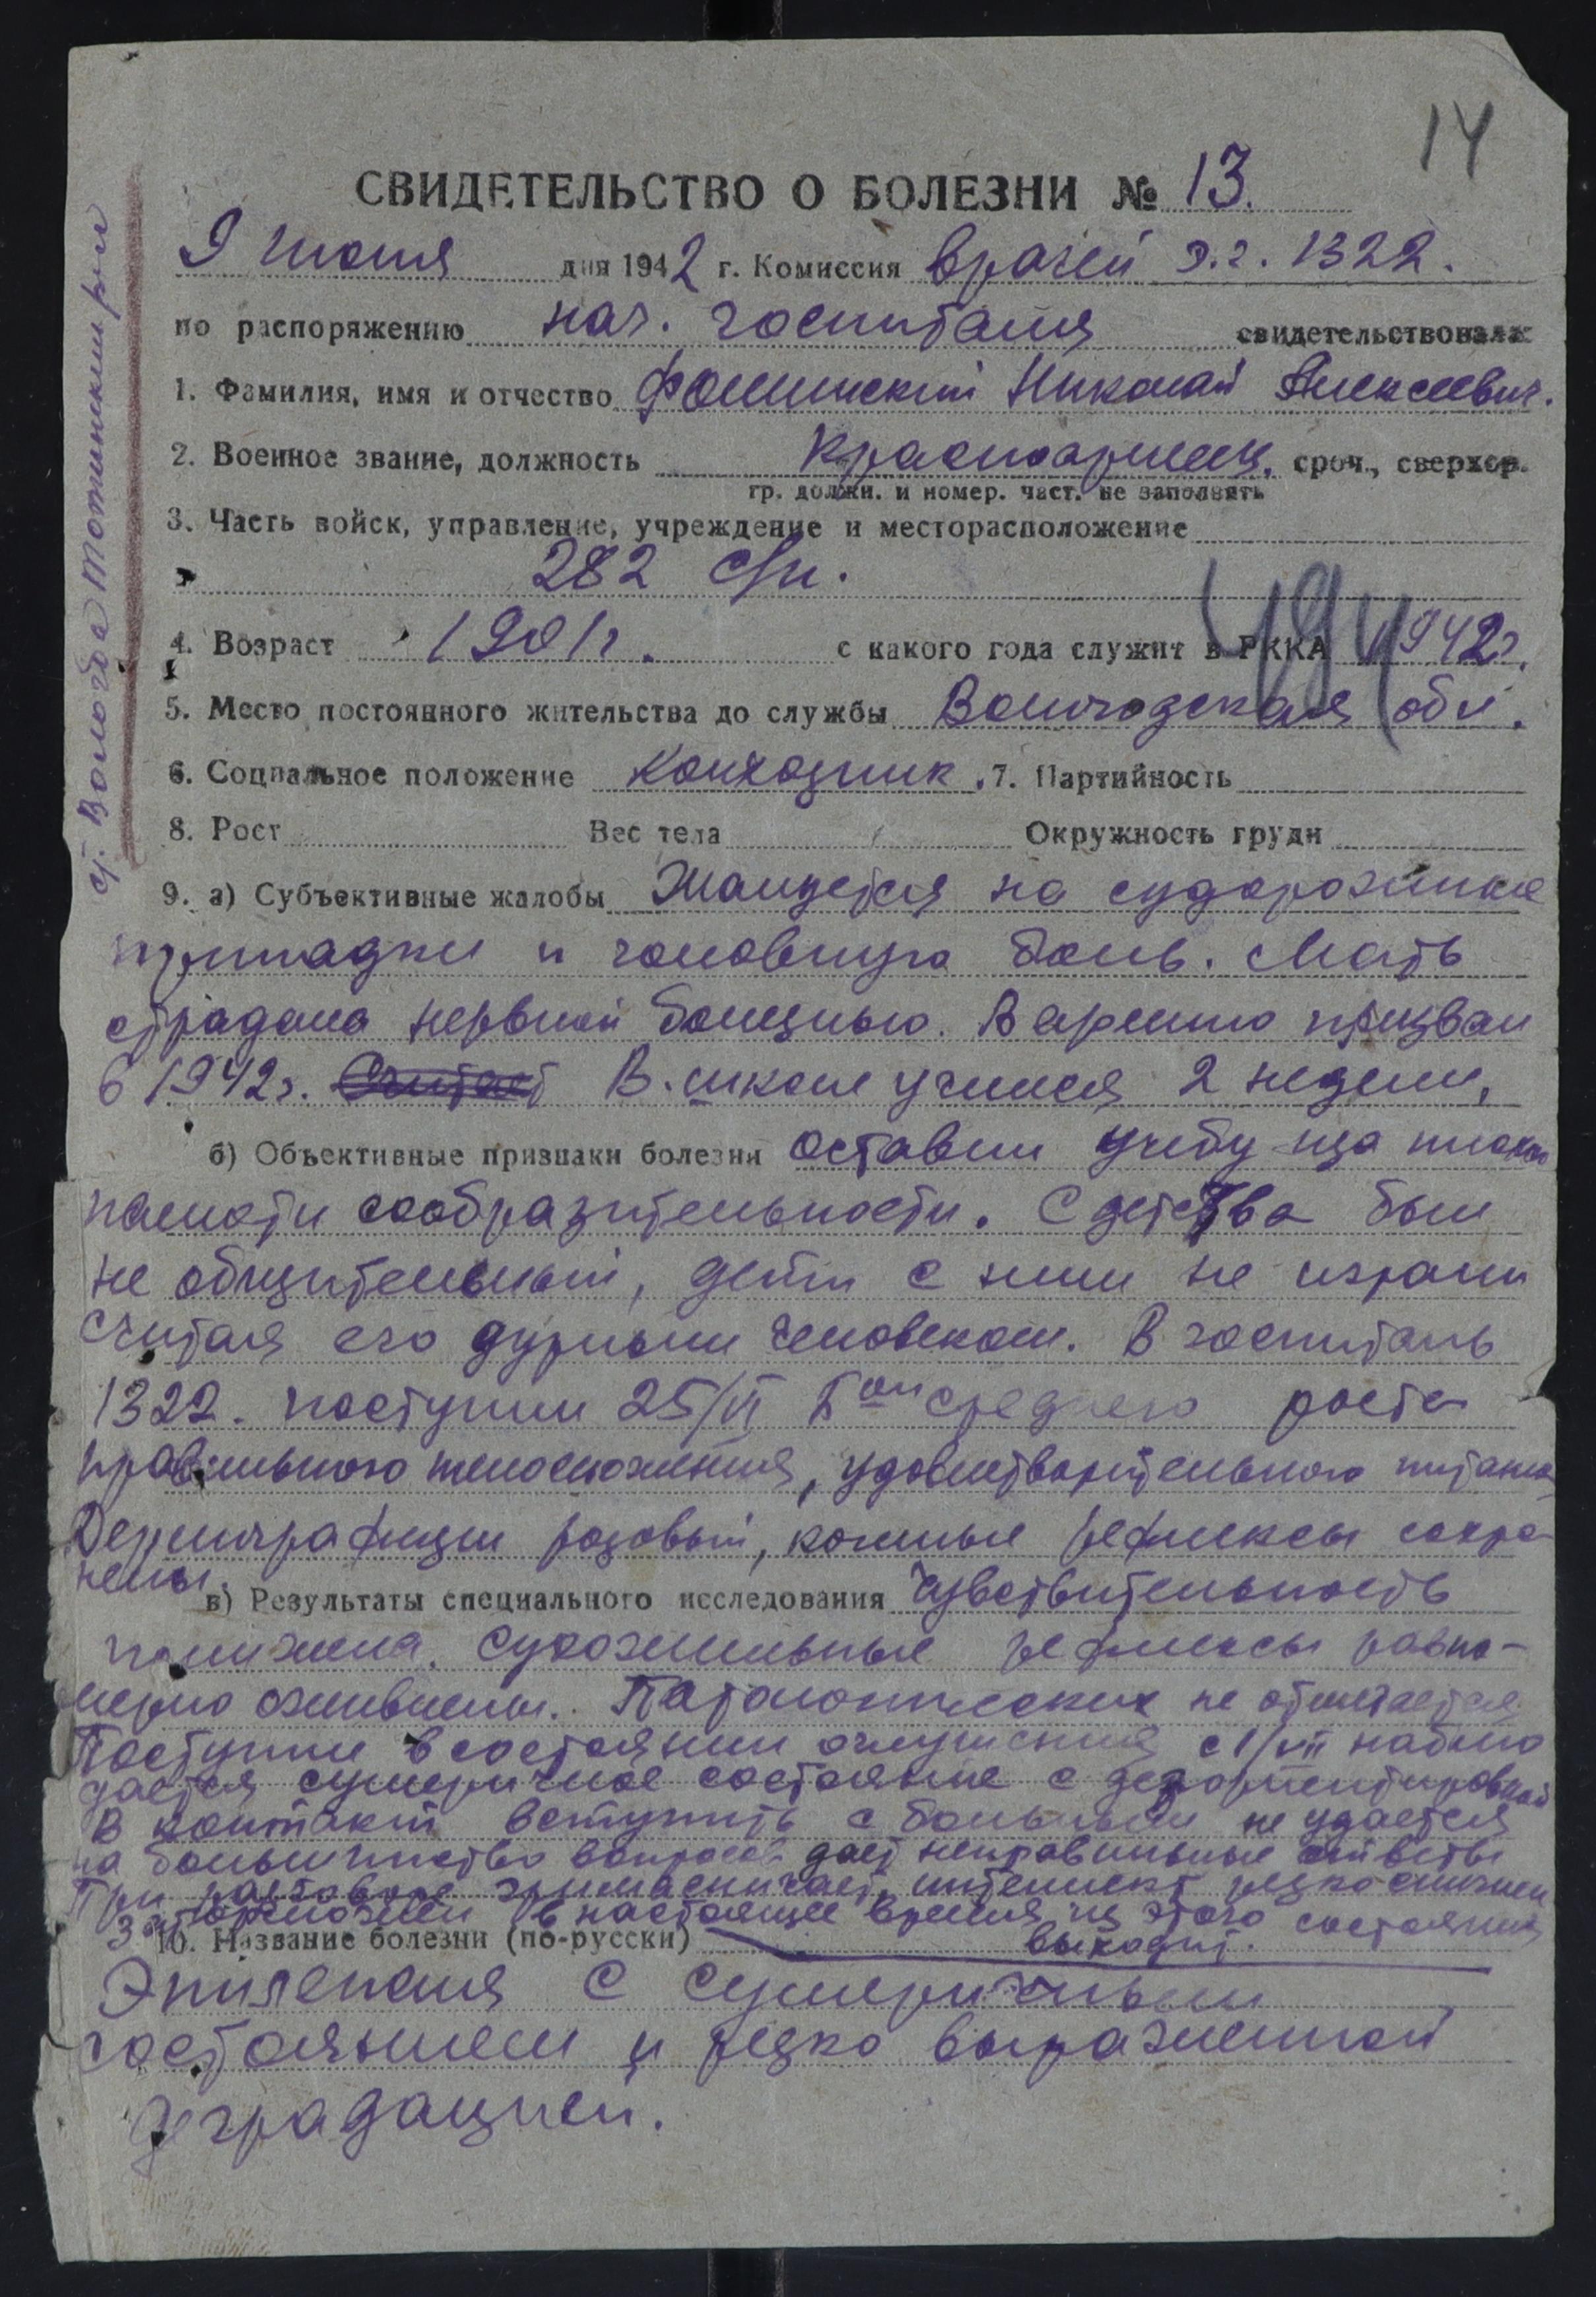 14
СВИДЕТЕЛЬСТВО О БОЛЕЗНИ № 13.
9 июля дня 1942 г. Комиссия врачей э.г. 1322.
по распоряжению нач. госпиталя свидетельствовала
1. Фамилия, имя и отчество Фоминский Николай Алексеевич.
2. Военное звание, должность Красноармеец, сроч., сверхср.
гр. должн. и номер. част. не заполнять
3. Часть войск, управление, учреждение и месторасположение
282 с/п.
4. Возраст 1901 г. с какого года служит в РККА 1942 г.
5. Место постоянного жительства до службы Вологодская обл.
6. Социальное положение колхозник. 7. Партийность
8. Рост Вес тела Окружность груди
9. а) Субъективные жалобы Жалуется на судорожные
припадки и головную боль. Мать
страдала нервной болезнью. В армию призван
в 1942 г. Считает В школе учился 2 недели,
б) Объективные признаки болезни оставил учебу из-за плохой
памяти сообразительности. С детства был
не общительный, дети с ним не играли
считая его дурным человеком. В госпиталь
1322. поступил 25/VI Б-ой среднего роста
правильного телосложения, удовлетворительного питания
Дермографизм розовый, кожные рефлексы сохра-
нены.
в) Результаты специального исследования Чувствительность
понижена. Сухожильные рефлексы равно-
мерно оживлены. Патологических не отмечается
Поступил в состоянии оглушения с 1/VII наблю
дается сумеричное состояние с дезориентировкой
В контакт вступить с больным не удается
на большинство вопросов дает неправильные ответы
При разговоре гримасничает, интеллект резко снижен
Заторможен в настоящее время из этого состояния
выходит.
10. Название болезни (по-русски)
Эпилепсия с сумеричным
состоянием и резко выраженной
деградацией.
ст. Вологда Тотьминский р-н